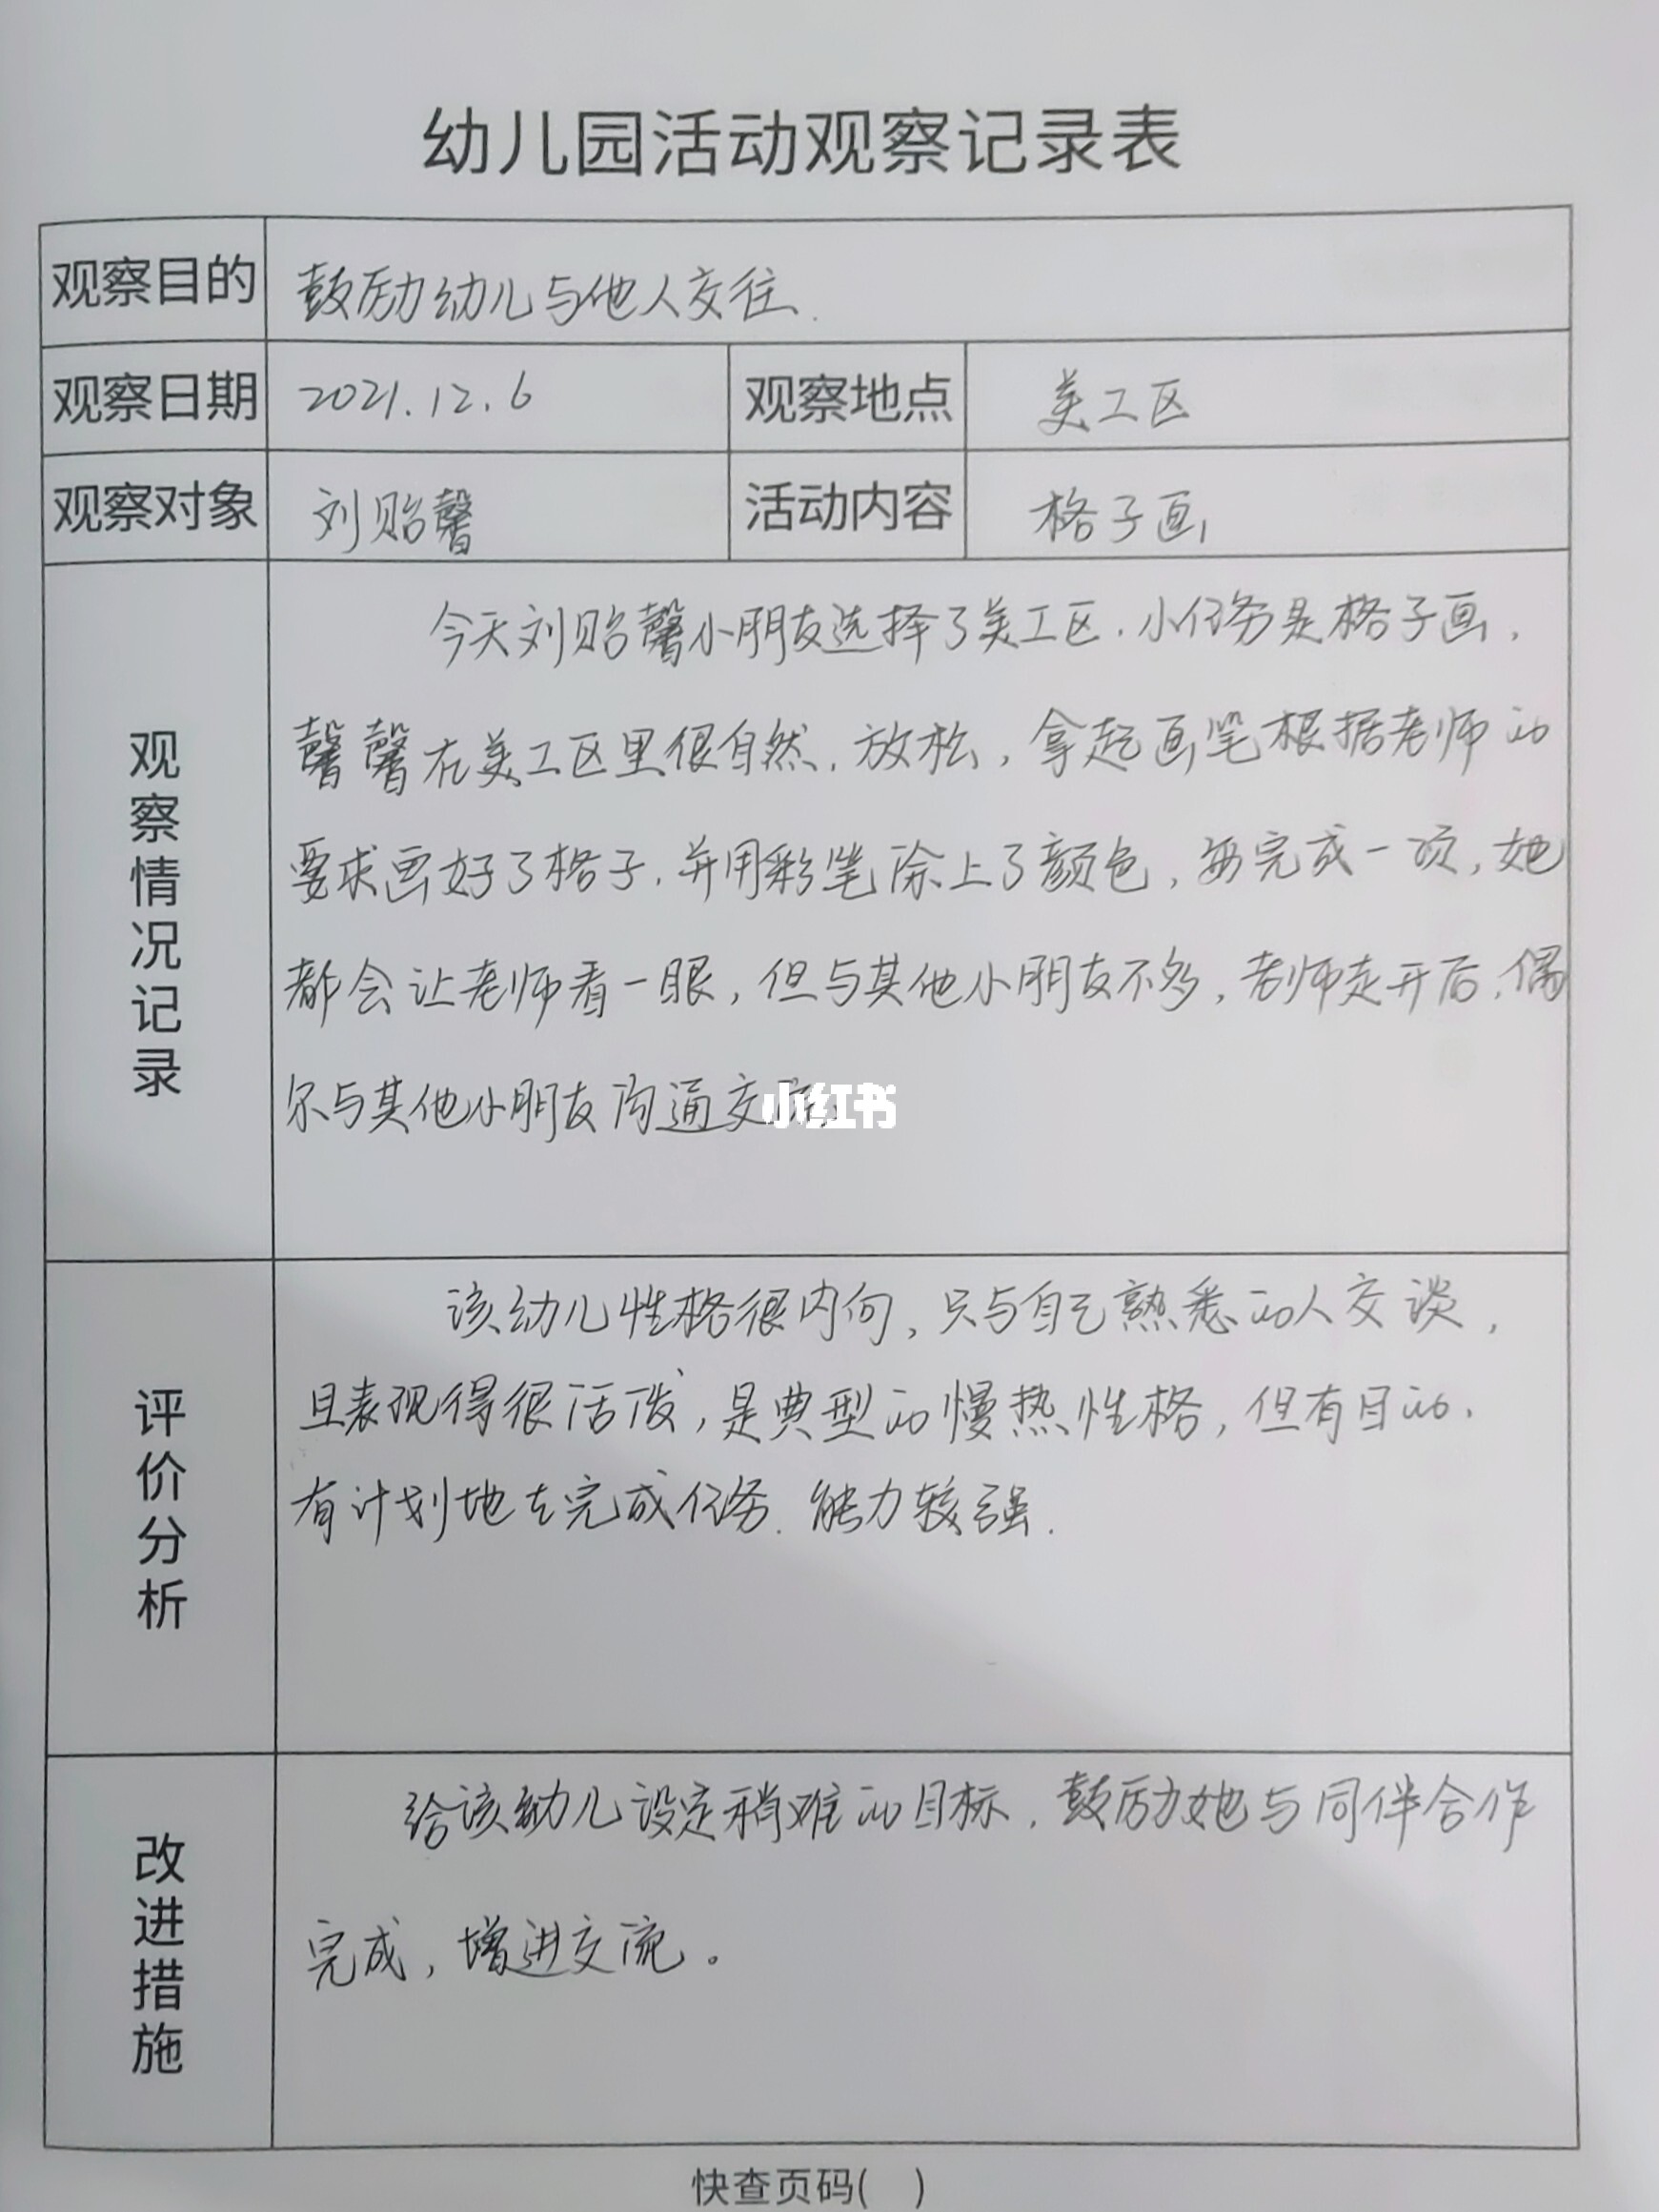 幼儿园活动观察记录表
观察目的 鼓励幼儿与他人交往.
观察日期 2021.12.6 观察地点 美工区
观察对象 刘贻馨 活动内容 格子画
观察情况记录
今天刘贻馨小朋友选择了美工区.小任务是格子画,
馨馨在美工区里很自然.放松,拿起画笔根据老师的
要求画好了格子.并用彩笔涂上了颜色,每完成一项,她
都会让老师看一眼,但与其他小朋友不多,老师走开后.偶
尔与其他小朋友沟通交流.
小红书
评价分析
该幼儿性格很内向,只与自己熟悉的人交谈,
且表现得很活泼,是典型的慢热性格,但有目的.
有计划地去完成任务.能力较强.
改进措施
给该幼儿设定稍难的目标.鼓励她与同伴合作
完成,增进交流。
快查页码( )